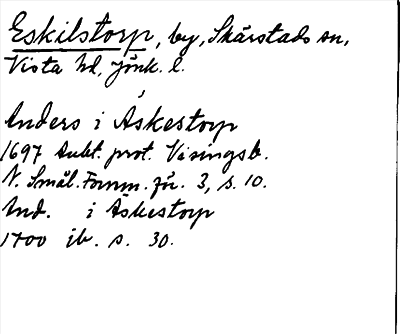 Eskilstorp, by, Skärstads sn,
Vista hd, Jönk. l.
Anders i Åskestorp
1697 Aukt. prot. Visingsb.
N. Smål. Fornm. för. 3, s. 10.
And. i Åskestorp
1700 ib. s. 30.